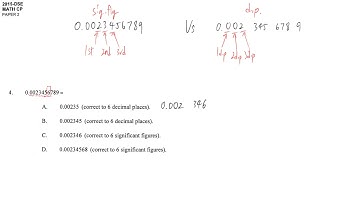 2015-DSE
MATH CP
PAPER 2
sig.fig.
d.p.
0.0023456789 Vs 0.002 345 678 9
1st 2nd 3rd
1dp 2dp 3dp
4. 0.0023456789 =
A. 0.00235 (correct to 6 decimal places). 0.002 346
B. 0.002345 (correct to 6 decimal places).
C. 0.002346 (correct to 6 significant figures).
D. 0.00234568 (correct to 6 significant figures).